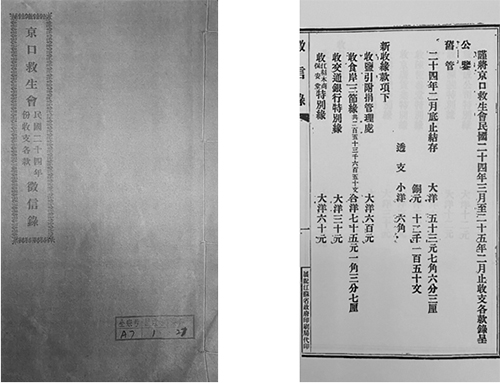 京口救生會民國二十四年
份收支各款徵信錄
A7 1
徵信錄
謹將京口救生會民國二十四年三月至二十五年二月止收支各款錄呈
公鑒
舊管
二十四年二月底止結存
大洋 五十三元七角六分三厘
銅元 十二千一百五十文
透支 小洋 六角
新收緣款項下
收鹽引附捐管理處 大洋六百元
收食岸三節緣共二百五十三千六百五十文 合洋七十五元一角三分七厘
收交通銀行特別緣 大洋三十元
特別緣 大洋六十元
鎮江江蘇省政府印刷局代印